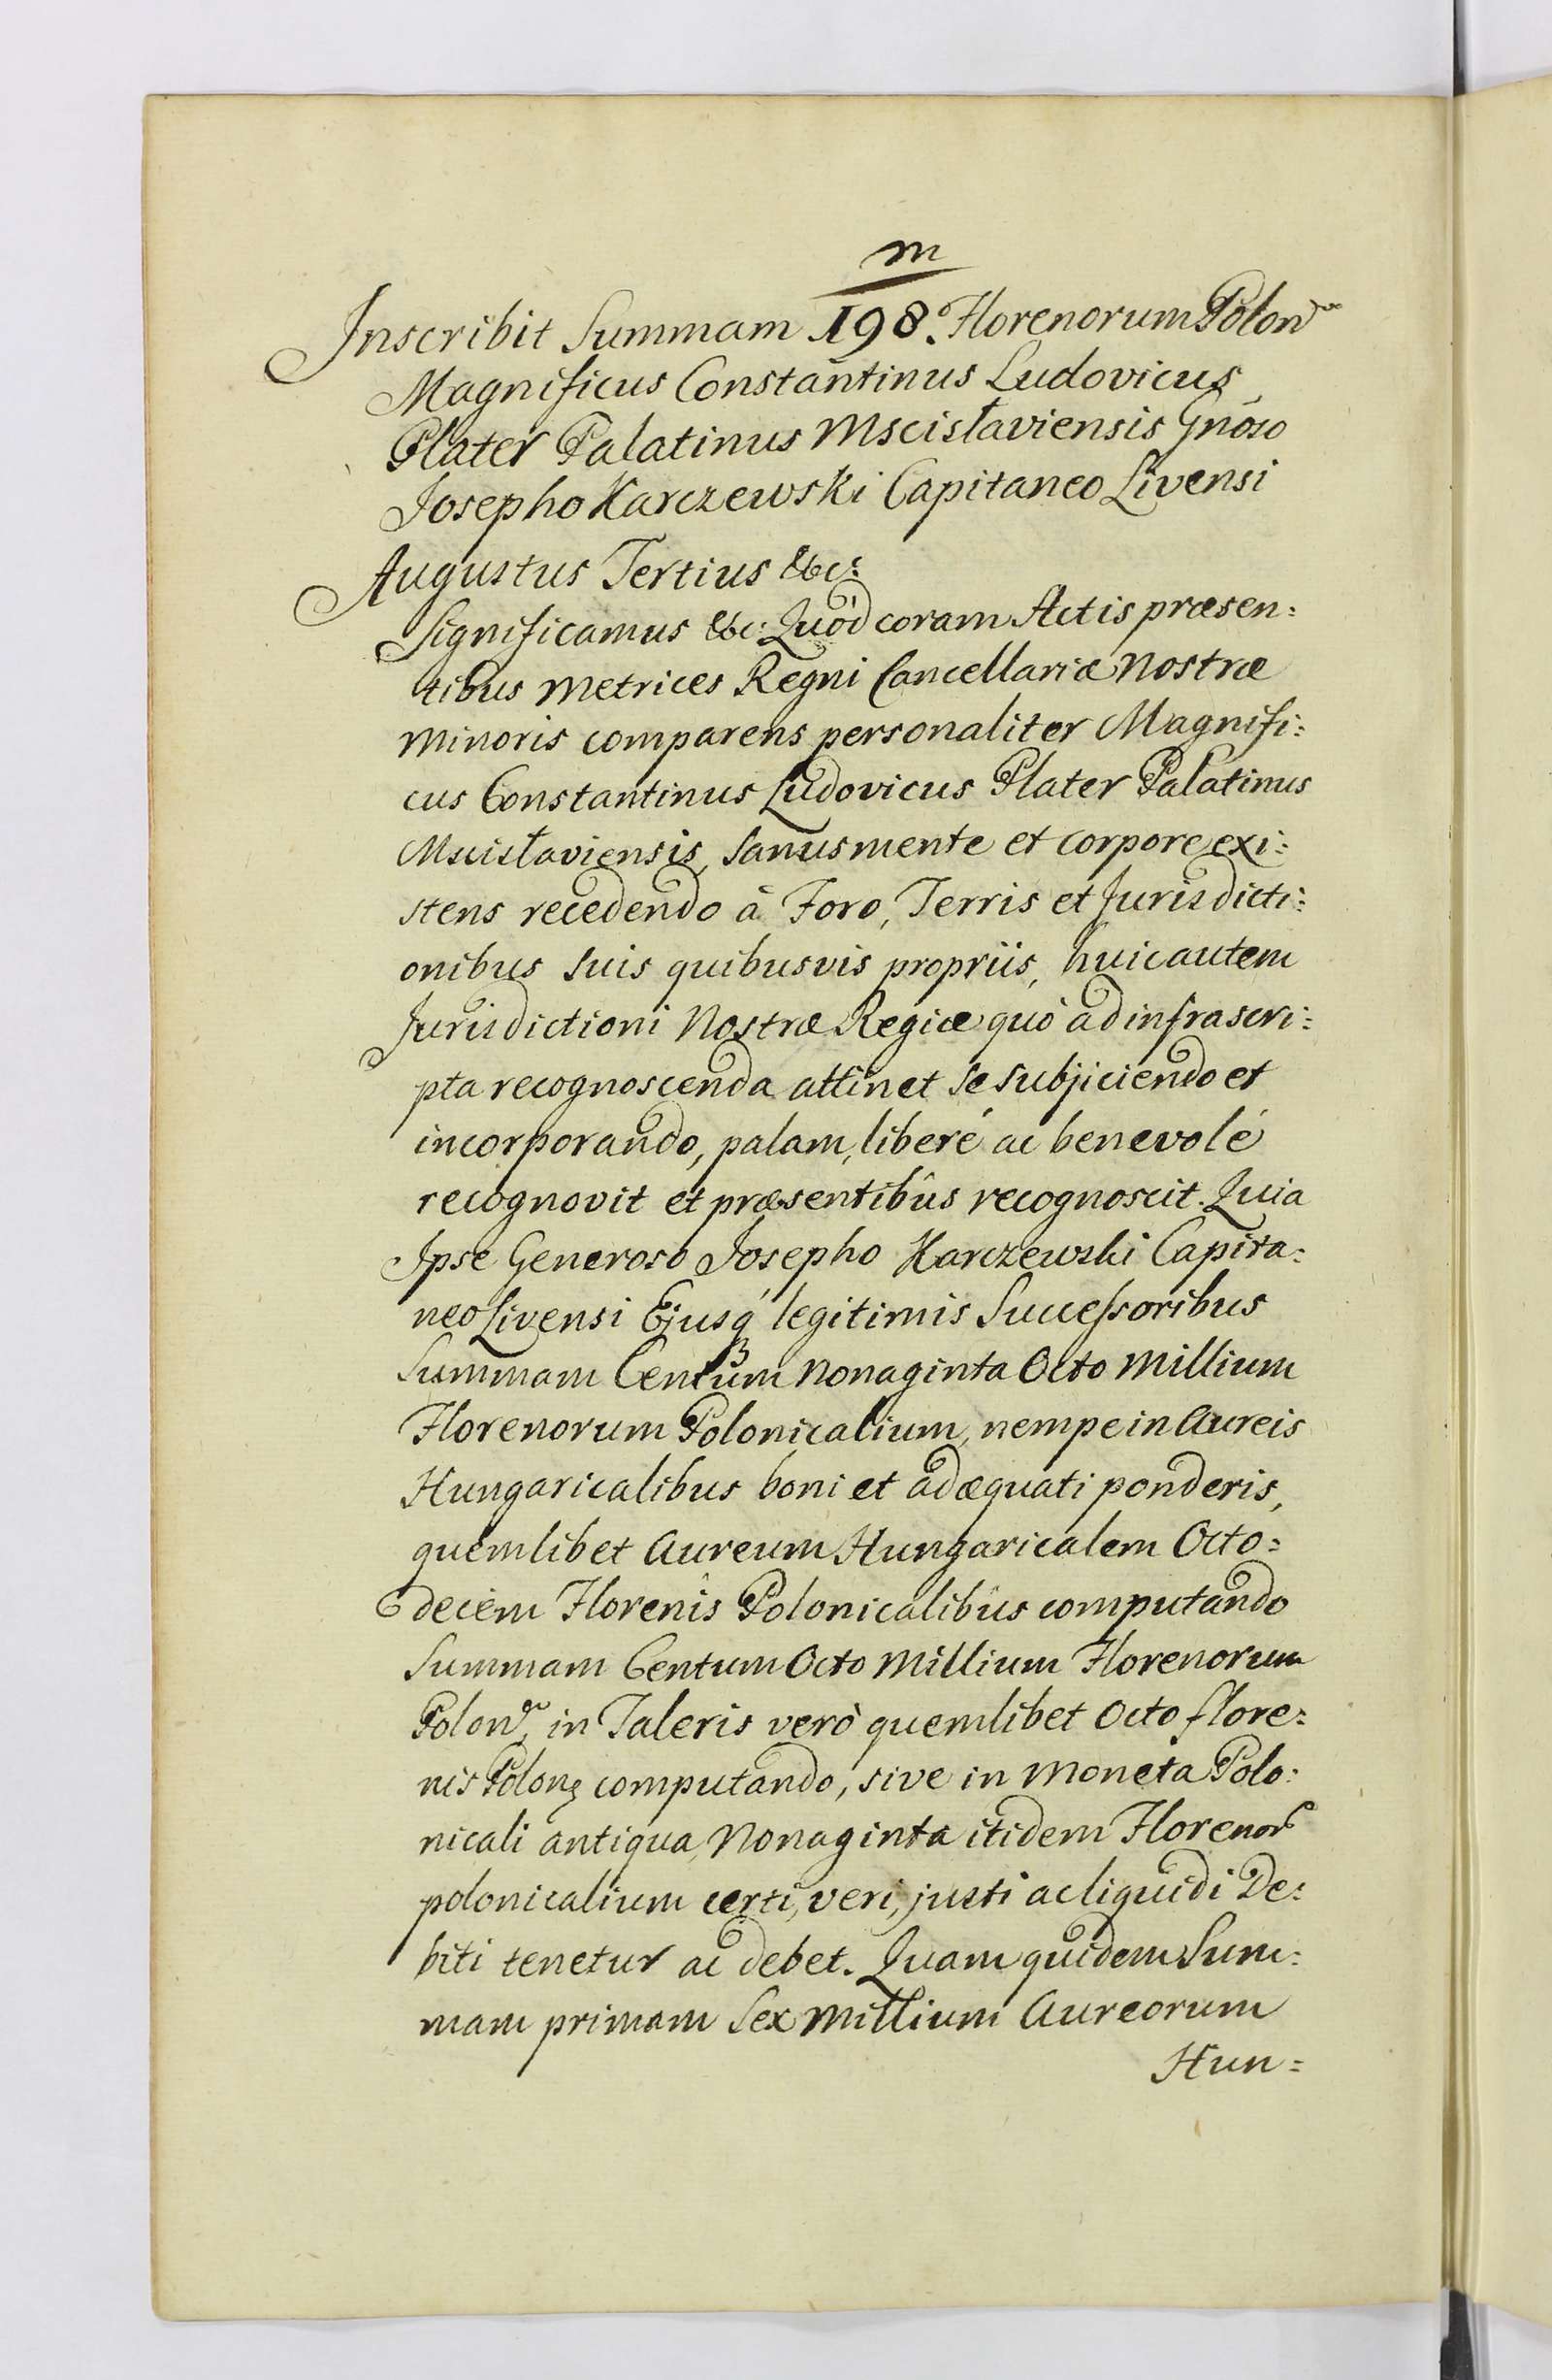 m
Inscribit Summam 198. Florenorum Polon
Magnificus Constantinus Ludovicus
Plater Palatinus Mscisłaviensis Gnõso
Josepho Karczewski Capitaneo Livensi
Augustus Tertius &c:
Significamus &c: Quòd coram Actis præsen:
tibus Metrices Regni Cancellariæ Nostræ
Minoris comparens personaliter Magnifi:
cus Constantinus Ludovicus Plater Palatinus
Mscisłaviensis, Sanus mente et corpore exi:
stens recedendo à Foro, Terris et Jurisdicti:
onibus suis quibusvis propriis, huic autem
Jurisdictioni Nostræ Regiæ quò ad infrascri:
pta recognoscenda attinet se subjiciendo et
incorporando, palam, liberé ac benevolé
recognovit et præsentibûs recognoscit. Quia
Ipse Generoso Josepho Karczewski Capita:
neo Livensi Ejusq́ legitimis Successoribus
Summam Centum Nonaginta Octo Millium
Florenorum Polonicalium, nempe in Aureis
Hungaricalibus boni et adæquati ponderis,
quemlibet Aureum Hungaricalem Octo:
decem Florenîs Polonicalibûs computando
Summam Centum Octo Millium Florenorum
Polon, in Taleris verò quemlibet Octo flore:
nis Polon computando, sive in Moneta Polo:
nicali antiqua, Nonaginta itidem Floreno℟
polonicalium certi, veri, justi ac liquidi De:
biti tenetur ac debet. Quam quidem Sum:
mam primam Sex Millium Aureorum
Hun: